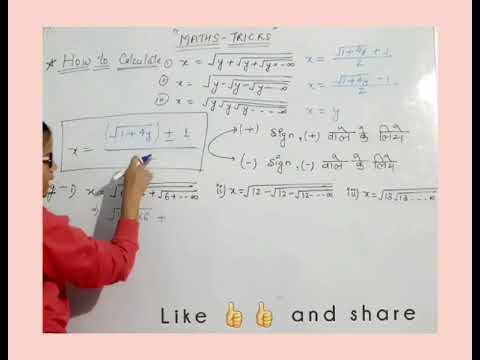 "MATHS-TRICKS"
* How to Calculate ① x = √y+√y+√y+--∞ x = √1+4y + 1 / 2
② x = √y-√y-√y--∞ x = √1+4y - 1 / 2
③ x = √y√y√y---∞ x = y
x = (√1+4y) ± 1
(+) Sign, (+) वाले के लिये
(-) Sign, (-) वाले के लिये
g-1) x = + √6+--∞ ii) x = √12-√12-√12--∞ iii) x = √13√13---∞
⇒ 6 +
Like 👍 👍 and share